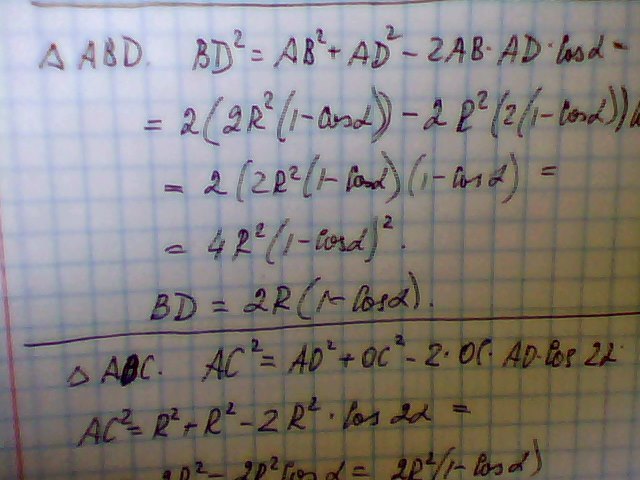 Δ ABD. BD² = AB² + AD² - 2AB·AD·cosα -
= 2(2R²(1-cosα)) - 2R²(2(1-cosα))
= 2(2R²(1-cosα)(1-cosα) =
= 4R²(1-cosα)².
BD = 2R(1-cosα).
Δ AOC. AC² = AO² + OC² - 2·OC·AO·cos2α
AC² = R² + R² - 2R²·cos2α =
2R² - 2R²cosα = 2R²(1-cosα)